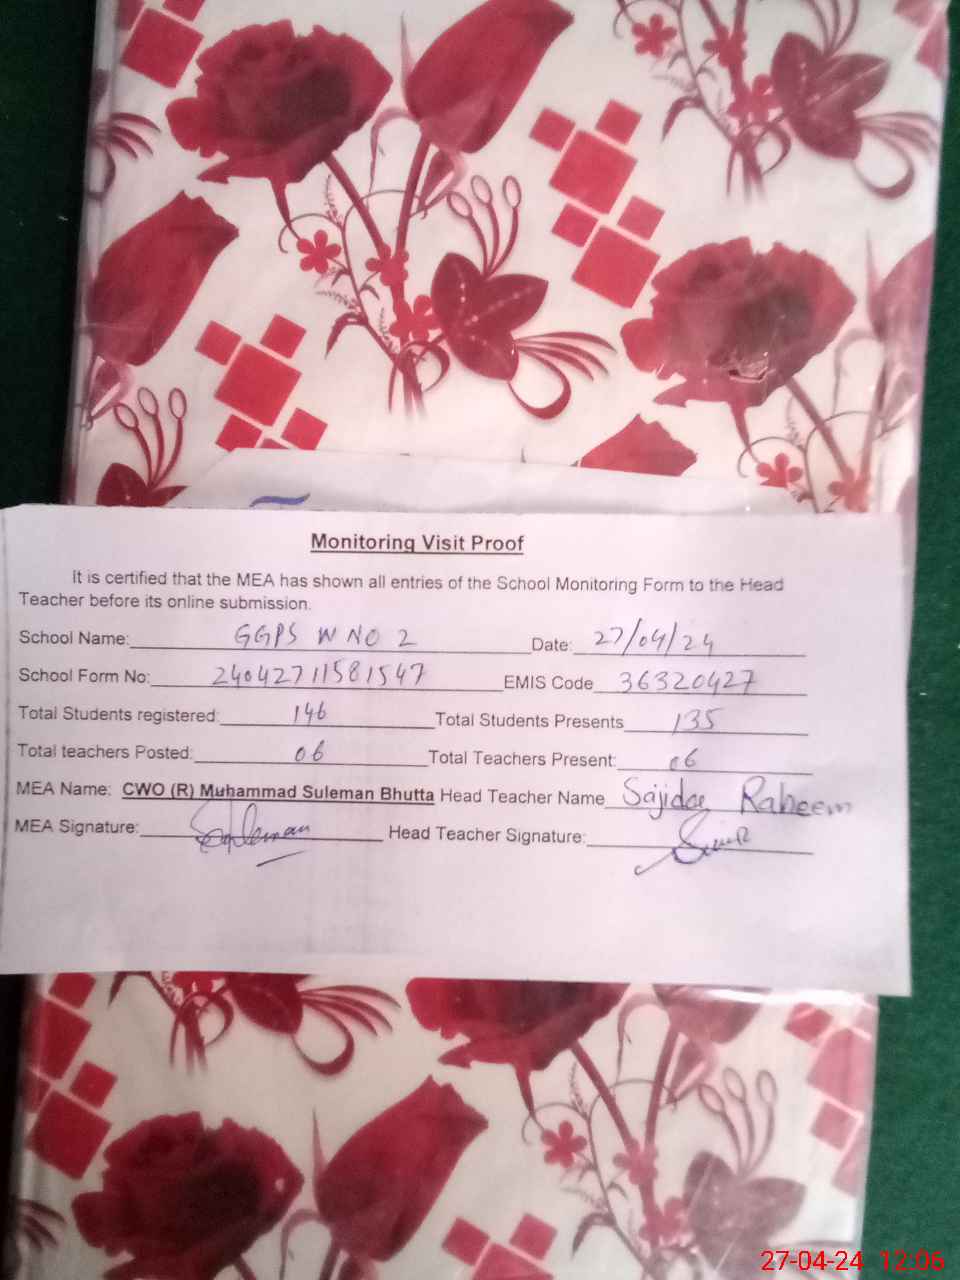 Monitoring Visit Proof
It is certified that the MEA has shown all entries of the School Monitoring Form to the Head
Teacher before its online submission.
School Name: GGPS W NO 2 Date: 27/04/24
School Form No: 24042711581547 EMIS Code 36320427
Total Students registered: 146 Total Students Presents 135
Total teachers Posted: 06 Total Teachers Present: 06
MEA Name: CWO (R) Muhammad Suleman Bhutta Head Teacher Name Sajida Raheem
MEA Signature: Suleman Head Teacher Signature:
27-04-24 12:06